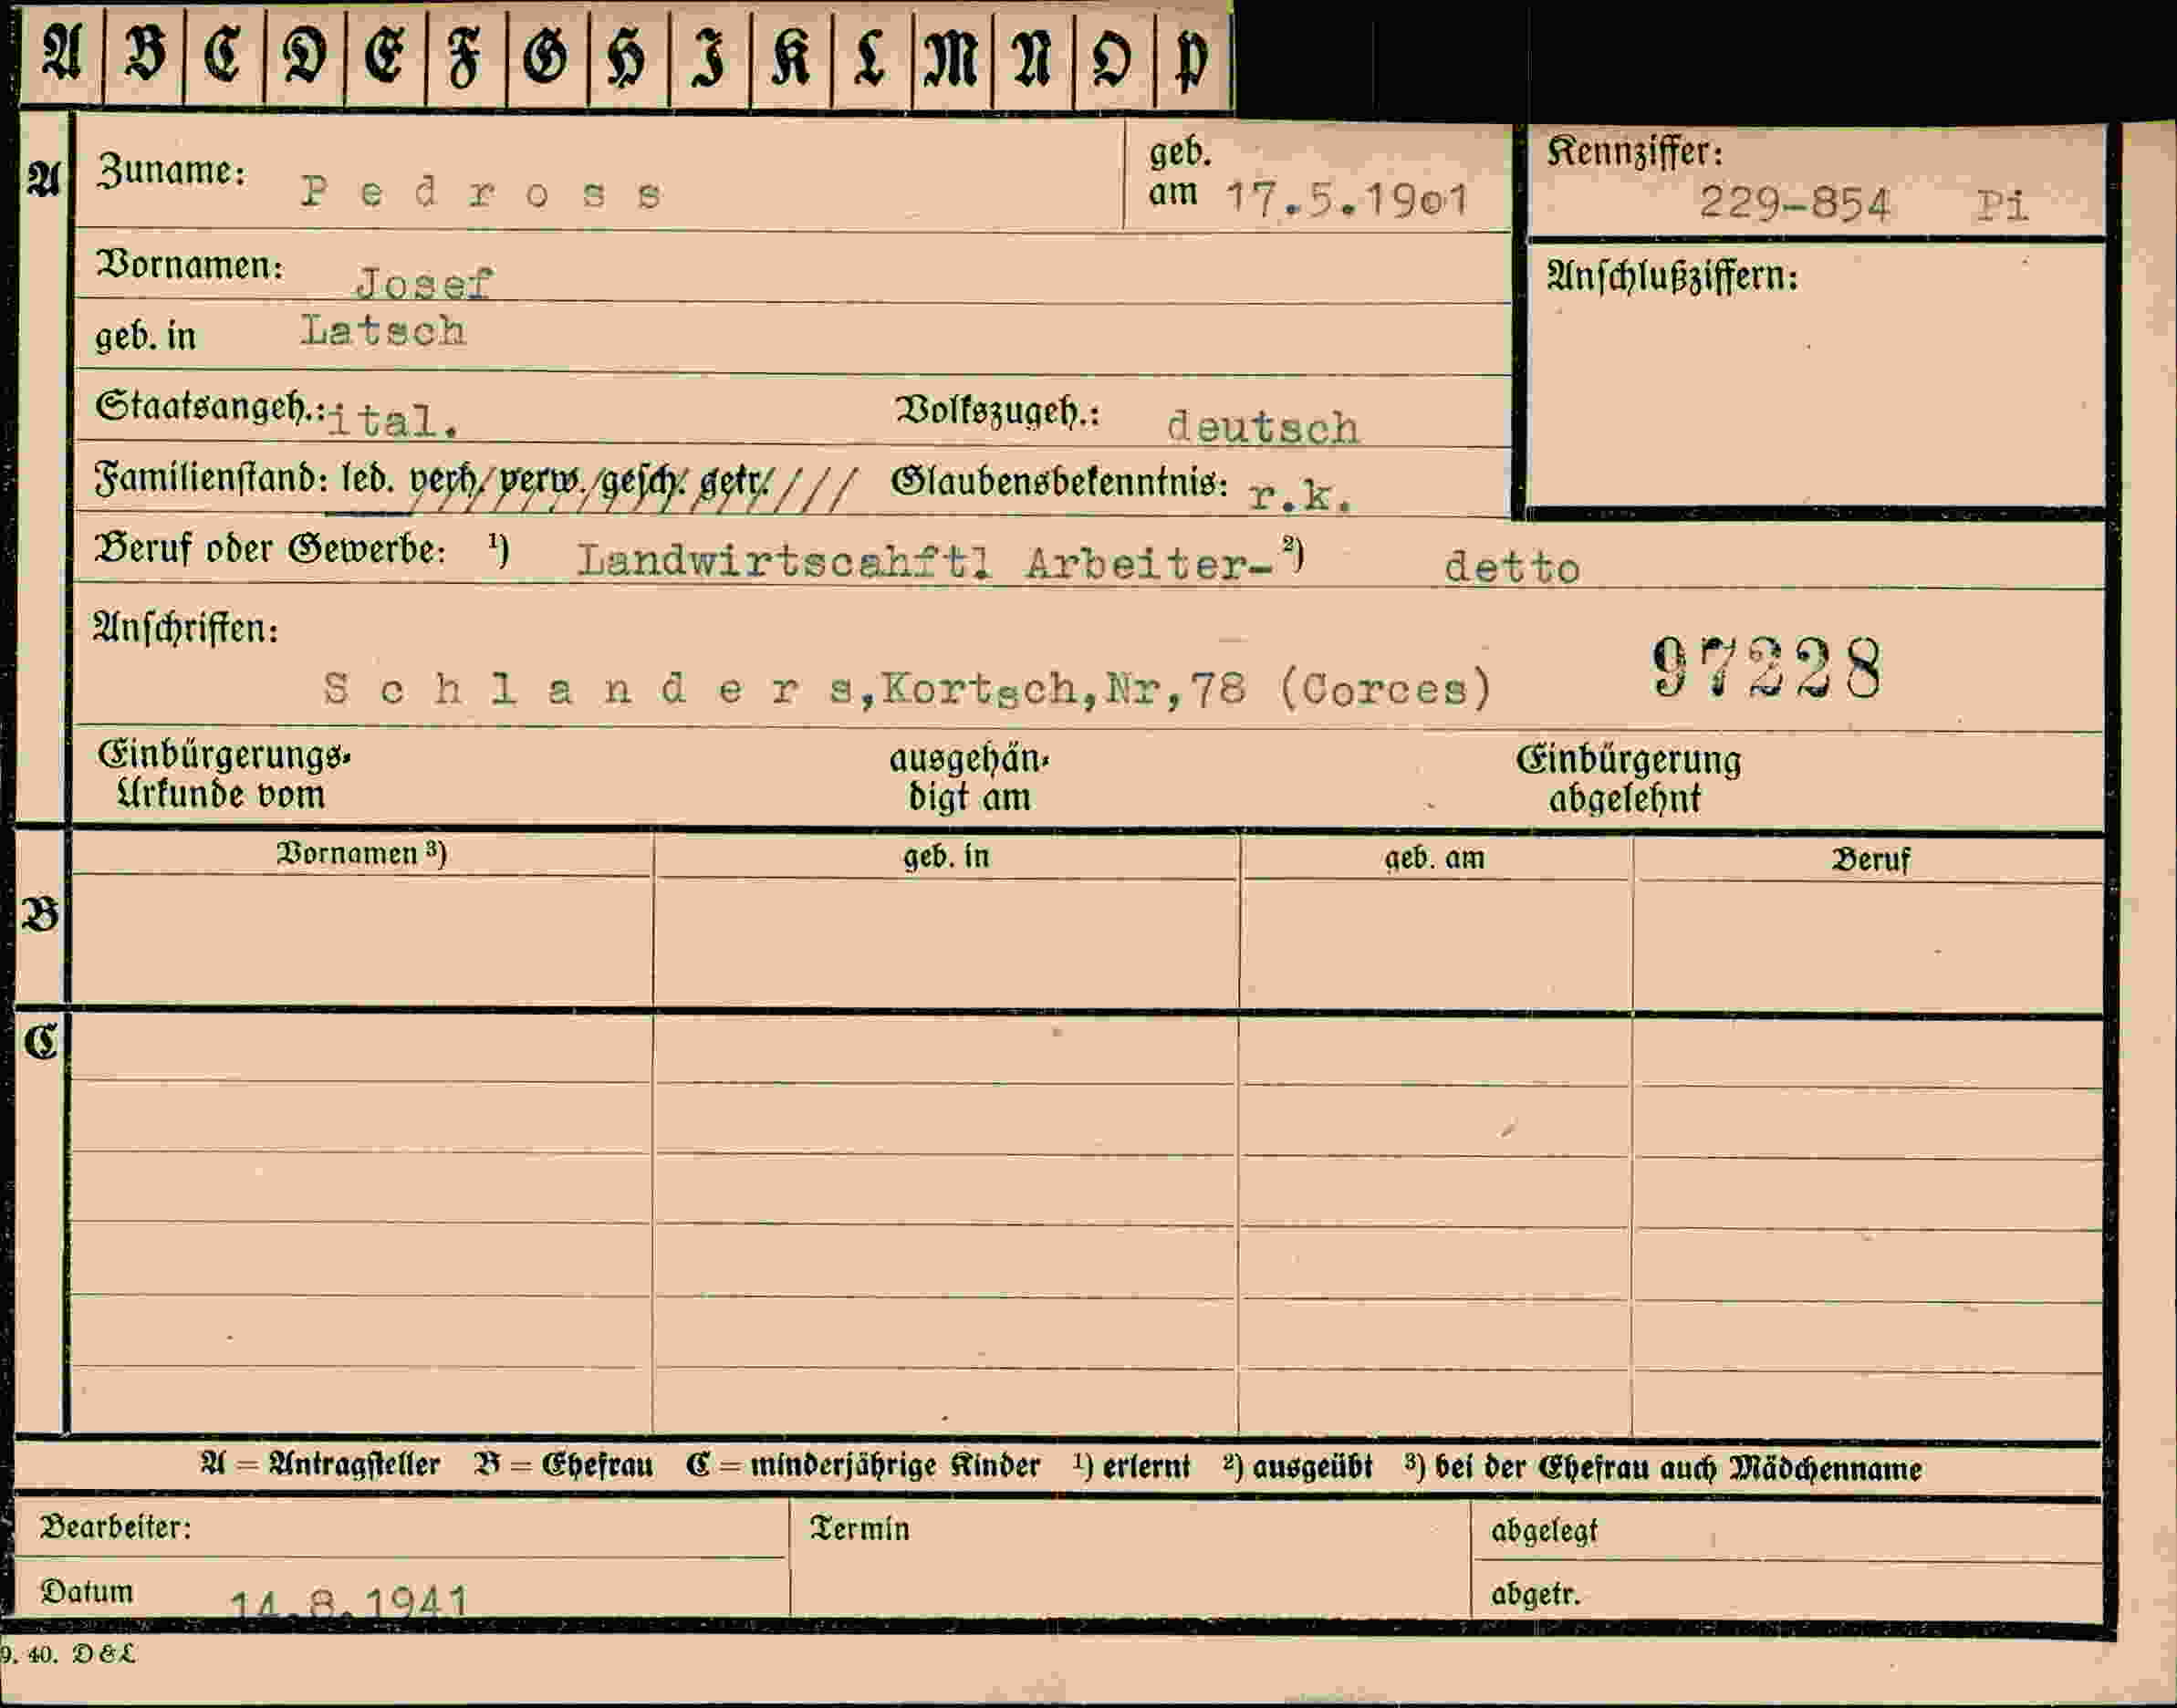 A B C D E F G H I K L M N O P
A
Zuname: Pedross
geb. am 17.5.1901
Kennziffer: 229-854 Pi
Vornamen: Josef
Anschlußziffern:
geb. in Latsch
Staatsangeh.: ital.
Volkszugeh.: deutsch
Familienstand: led. verh. verw. gesch. getr.
Glaubensbekenntnis: r.k.
Beruf oder Gewerbe: ¹) Landwirtscahftl Arbeiter- ²) detto
Anschriften:
Schlanders,Kortsch,Nr,78 (Corces)
97228
Einbürgerungs-
Urkunde vom
ausgehän-
digt am
Einbürgerung
abgelehnt
B
Vornamen ³) geb. in geb. am Beruf
C
A = Antragsteller B = Ehefrau C = minderjährige Kinder ¹) erlernt ²) ausgeübt ³) bei der Ehefrau auch Mädchenname
Bearbeiter:
Termin
abgelegt
Datum 14.8.1941
abgetr.
9. 40. D & L